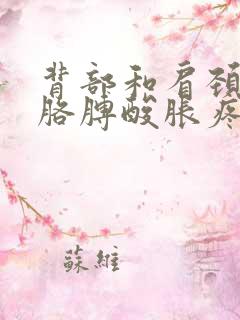 背部和肩颈
胳膊酸胀疼
蘇維